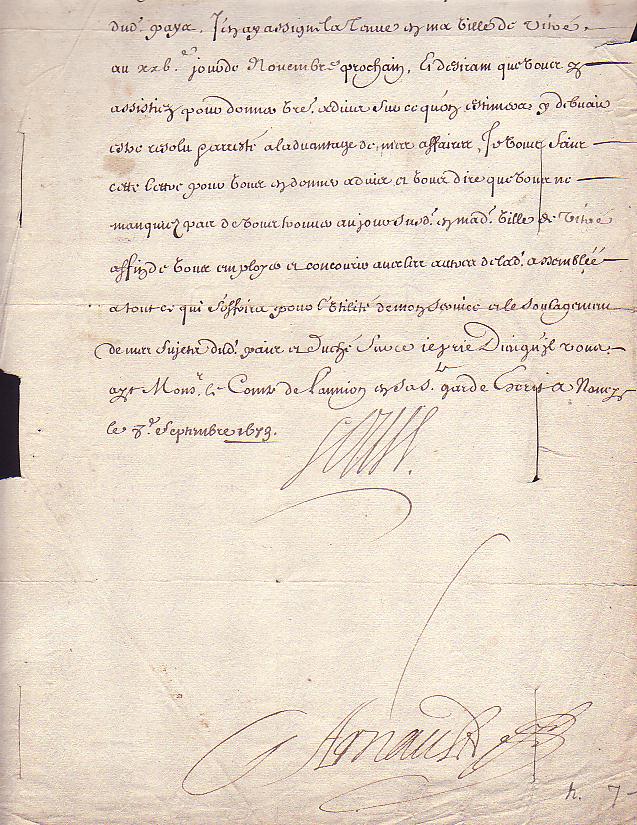 dud. paÿs, J'en ay assigné la Tenue en ma Ville de Vitré,
au xxb.e jour de Novembre prochain, Et desirant que vous y
assistiez pour donner vre. advis sur ce qu'on estimera y debvoir
estre resolu & arresté a l'advantage de mes affaires, Je vous faict
cette lettre pour vous en donner advis et vous dire que vous ne
manquiez pas de vous trouver au jour susd. en mad. Ville de Vitré
affin de vous employer et concourir avec les autres de lad. assemblée
a tout ce qui s'offrira pour l'Utilité de mon Service et le Soulagement
de mes Sujets dud. païs et Duché Sur ce je prie Dieu qu'il vous
ayt Mons.r le Comte de Lannion en sa s.te garde Escrit a Nancy
le 8.e Septembre 1673.
Louis.
Arnauld
h. 7